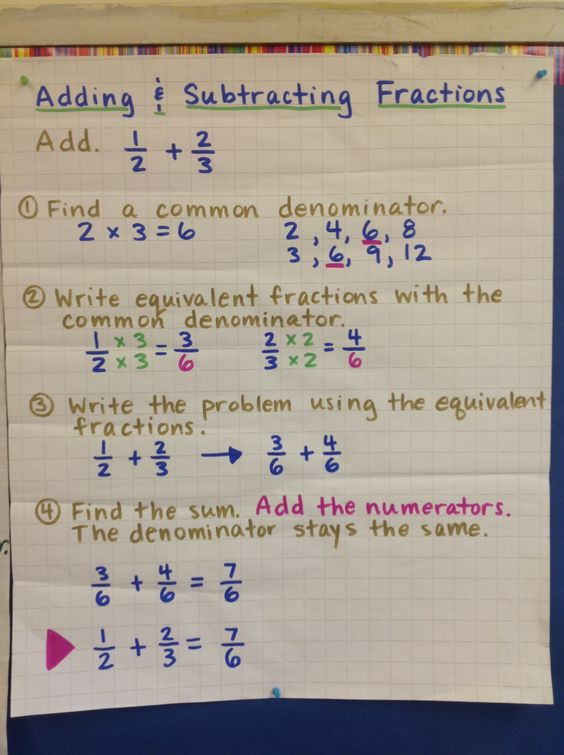 Adding & Subtracting Fractions
Add. 1/2 + 2/3
① Find a common denominator.
2 × 3 = 6 2, 4, 6, 8
3, 6, 9, 12
② Write equivalent fractions with the
common denominator.
1/2 × 3/× 3 = 3/6 2/3 × 2/× 2 = 4/6
③ Write the problem using the equivalent
fractions.
1/2 + 2/3 → 3/6 + 4/6
④ Find the sum. Add the numerators.
The denominator stays the same.
3/6 + 4/6 = 7/6
1/2 + 2/3 = 7/6